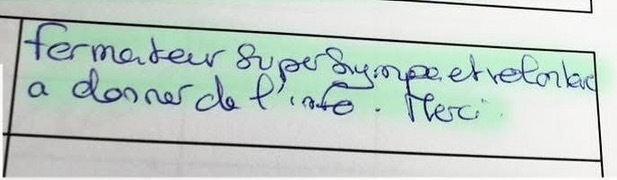 fermateur super sympa et volontaire
a donner de l'info. Merci